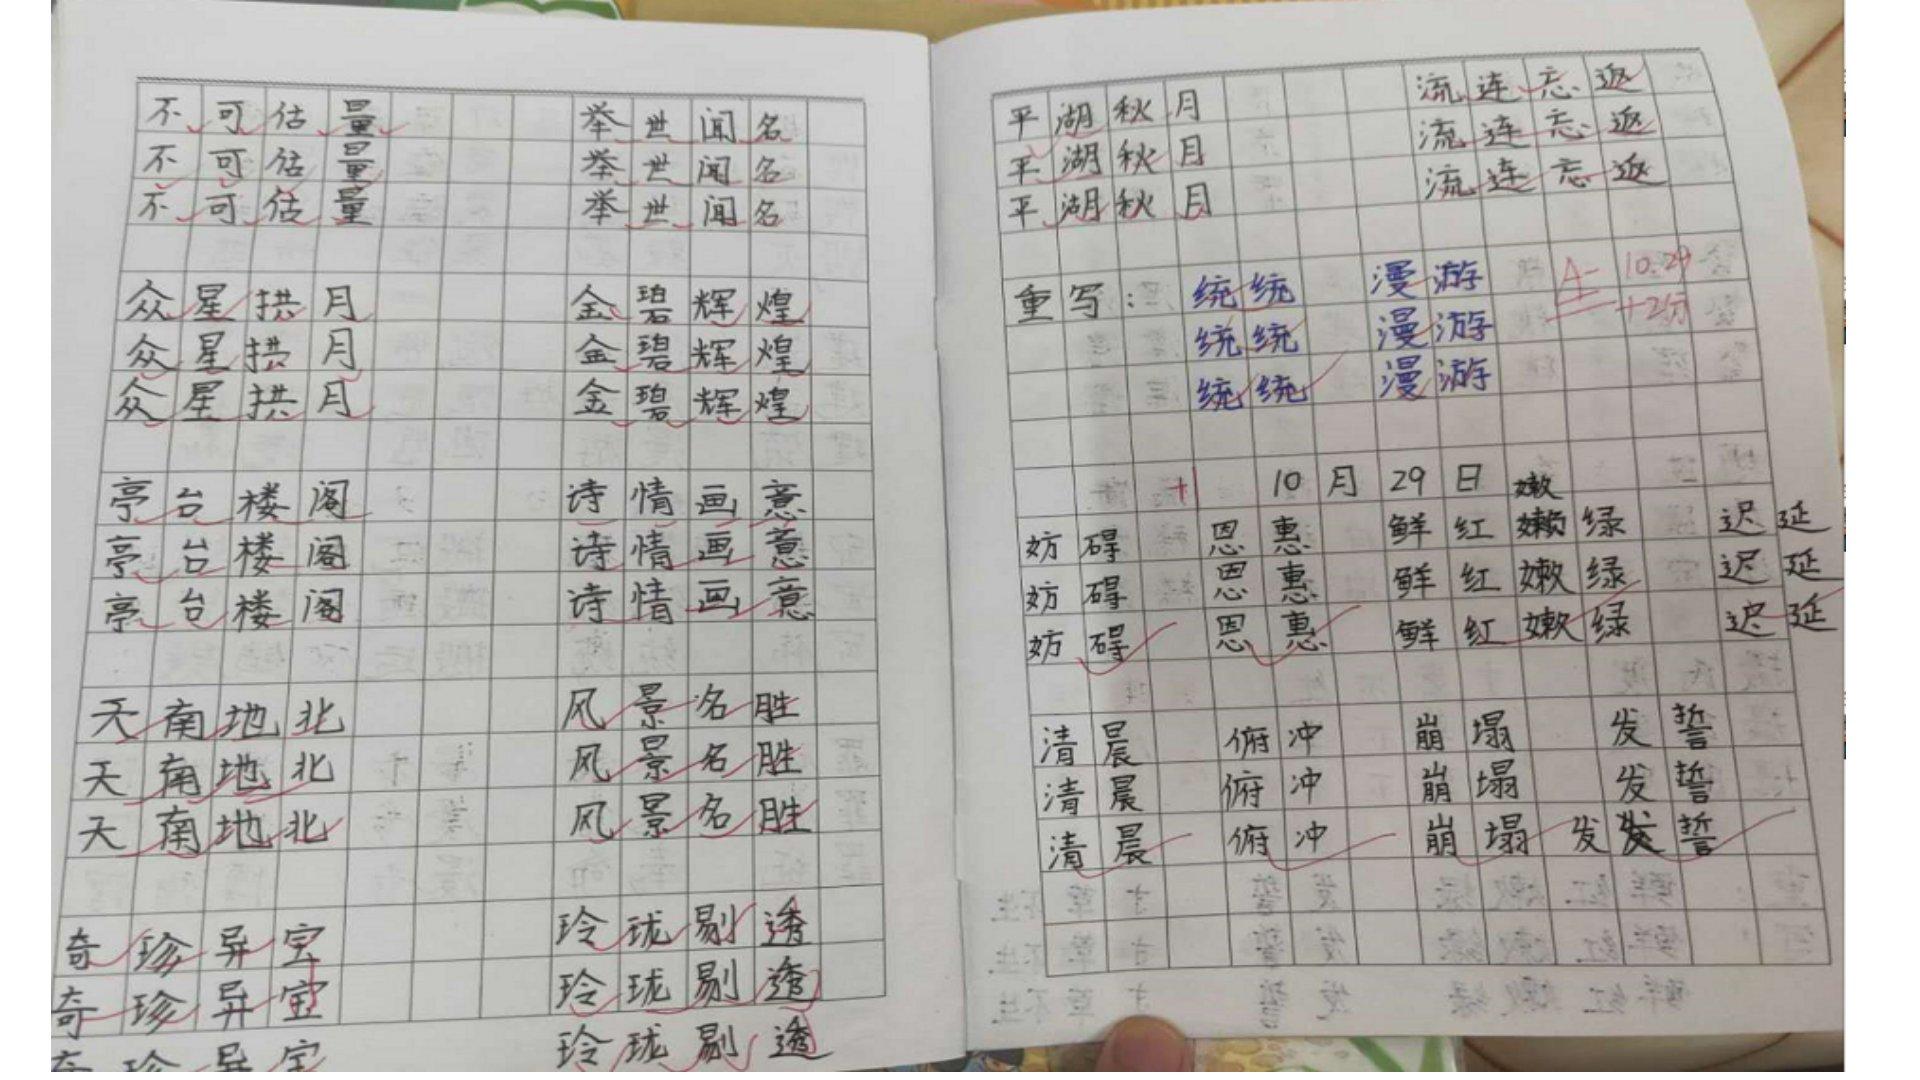 不可估量 举世闻名
不可估量 举世闻名
不可估量 举世闻名
众星拱月 金碧辉煌
众星拱月 金碧辉煌
众星拱月 金碧辉煌
亭台楼阁 诗情画意
亭台楼阁 诗情画意
亭台楼阁 诗情画意
天南地北 风景名胜
天南地北 风景名胜
天南地北 风景名胜
奇珍异宝 玲珑剔透
奇珍异宝 玲珑剔透
奇珍异宝 玲珑剔透
平湖秋月 流连忘返
平湖秋月 流连忘返
平湖秋月 流连忘返
重写: 统统 漫游 A- 10.29
统统 漫游 +2分
统统 漫游
10月29日 嫩
妨碍 恩惠 鲜红嫩绿 迟延
妨碍 恩惠 鲜红嫩绿 迟延
妨碍 恩惠 鲜红嫩绿 迟延
清晨 俯冲 崩塌 发誓
清晨 俯冲 崩塌 发誓
清晨 俯冲 崩塌 发誓